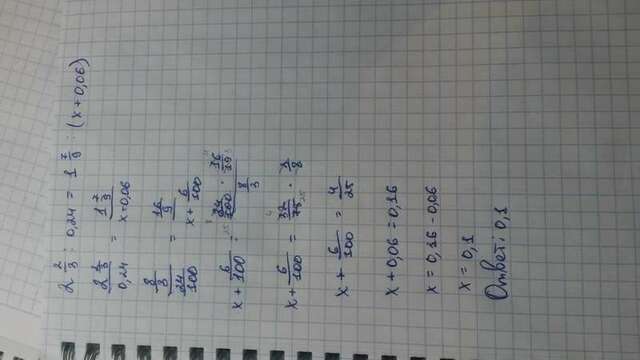 2 2/3 : 0,24 = 1 7/9 : (x + 0,06)
2 2/3 / 0,24 = 1 7/9 / x + 0,06
8/3 / 24/100 = 16/9 / x + 6/100
x + 6/100 = 24/100 · 16/9 / 8/3
x + 6/100 = 32/75 · 3/8
x + 6/100 = 4/25
x + 0,06 = 0,16
x = 0,16 - 0,06
x = 0,1
Ответ: 0,1